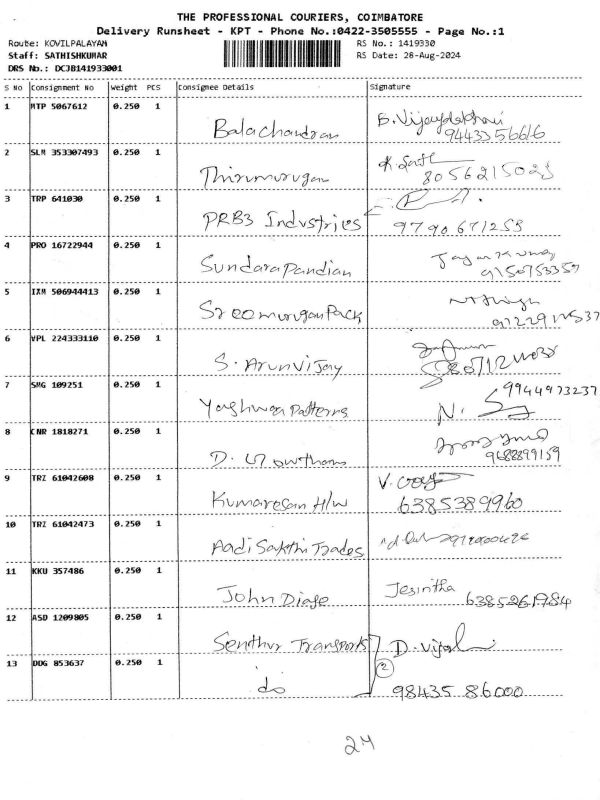 THE PROFESSIONAL COURIERS, COIMBATORE
Delivery Runsheet - KPT - Phone No.:0422-3505555 - Page No.:1
Route: KOVILPALAYAM RS No.: 1419330
Staff: SATHISHKUMAR RS Date: 28-Aug-2024
DRS No.: DCJB141933001
S No Consignment No Weight PCS Consignee Details Signature
1 MTP 5067612 0.250 1 Balachandran
2 SLM 353307493 0.250 1 Thirumurugan
8056215023
3 TRP 641030 0.250 1 PRB3 Industries
9790671253
4 PRO 16722944 0.250 1 Sundarapandian
9150753357
5 IXM 506944413 0.250 1 SreemuruganPack
6 VPL 224333110 0.250 1 S. Arunvijay
7 SMG 109251 0.250 1 Yashwaa Patterns N. 9944973237
8 CNR 1818271 0.250 1 D. Gowtham
9688899159
9 TRZ 61042608 0.250 1 Kumaresan H/w V.
6385389960
10 TRZ 61042473 0.250 1 Aadi Sakthi Trades
11 KKU 357486 0.250 1 John Diage Jesintha
6385261984
12 ASD 1209805 0.250 1 Senthur Transports D. Vijal
2
13 DDG 853637 0.250 1 do 98435 86000
24